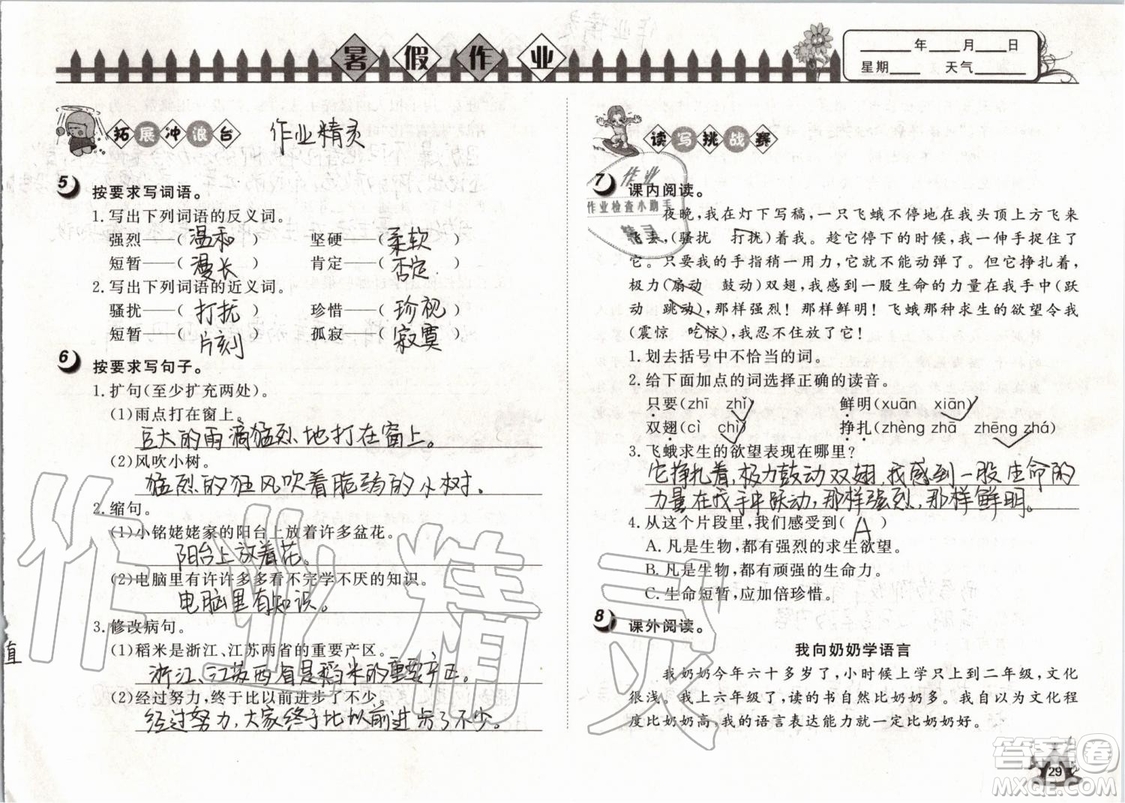 作业精灵
暑假作业
年 月 日
星期 天气
拓展冲浪台 作业精灵
5 按要求写词语。
1. 写出下列词语的反义词。
强烈——( 温和 ) 坚硬——( 柔软 )
短暂——( 漫长 ) 肯定——( 否定 )
2. 写出下列词语的近义词。
骚扰——( 打扰 ) 珍惜——( 珍视 )
短暂——( 片刻 ) 孤寂——( 寂寞 )
6 按要求写句子。
1. 扩句(至少扩充两处)。
(1)雨点打在窗上。
巨大的雨滴猛烈地打在窗上。
(2)风吹小树。
猛烈的狂风吹着脆弱的小树。
2. 缩句。
(1)小铭姥姥家的阳台上放着许多盆花。
阳台上放着花。
(2)电脑里有许许多多看不完学不厌的知识。
电脑里有知识。
3. 修改病句。
(1)稻米是浙江、江苏两省的重要产区。
浙江、江苏两省是稻米的重要产区。
(2)经过努力,终于比以前进步了不少。
经过努力,大家终于比以前进步了不少。
读写挑战赛
作业
作业检查小助手
精灵
7 课内阅读。
夜晚,我在灯下写稿,一只飞蛾不停地在我头上方飞来
飞去,(骚扰 打扰)着我。趁它停下的时候,我一伸手捉住了
它。只要我的手指稍一用力,它就不能动弹了。但它挣扎着,
极力(扇动 鼓动)双翅,我感到一股生命的力量在我手中(跃
动 跳动),那样强烈!那样鲜明!飞蛾那种求生的欲望令我
(震惊 吃惊),我忍不住放了它!
1. 划去括号中不恰当的词。
2. 给下面加点的词选择正确的读音。
只要(zhī zhǐ) 鲜明(xuān xiān)
双翅(cì chì) 挣扎(zhèng zhā zhēng zhá)
3. 飞蛾求生的欲望表现在哪里?
它挣扎着,极力鼓动双翅,我感到一股生命的
力量在我手中跃动,那样强烈、那样鲜明。
4. 从这个片段里,我们感受到( A )
A. 凡是生物,都有强烈的求生欲望。
B. 凡是生物,都有顽强的生命力。
C. 生命短暂,应加倍珍惜。
8 课外阅读。
我向奶奶学语言
我奶奶今年六十多岁了,小时候上学只上到二年级,文化
很浅。我上六年级了,读的书自然比奶奶多。我自以为文化程
度比奶奶高,我的语言表达能力就一定比奶奶好。
作业精灵
值
29
答案圈
MXQE.COM